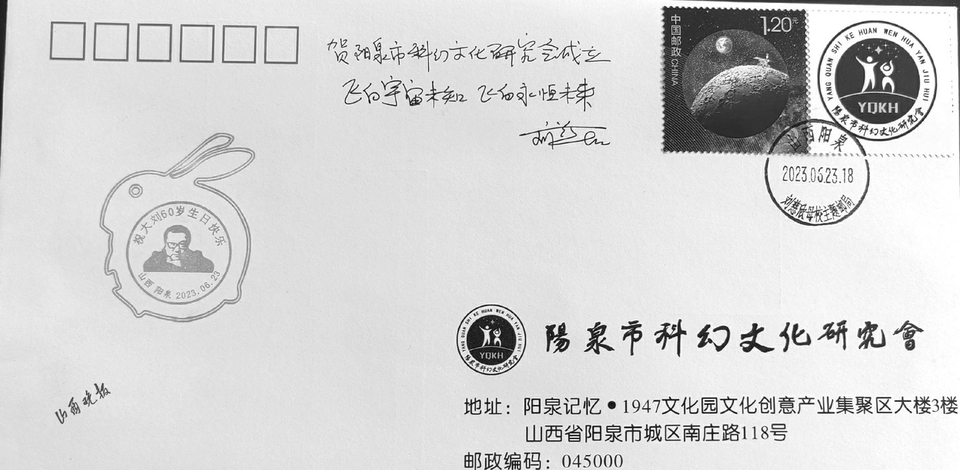 贺阳泉市科幻文化研究会成立
飞向宇宙未知 飞向永恒未来
中国邮政 CHINA
1.20元
YANG QUAN SHI KE HUAN WEN HUA YAN JIU HUI
YQKH
陽泉市科幻文化研究會
山西阳泉
2023.06.23.18
刘慈欣母校主题邮局
祝大刘60岁生日快乐
山西 阳泉 2023.06.23
YANG QUAN SHI KE HUAN WEN HUA YAN JIU HUI
YQKH
陽泉市科幻文化研究會
陽泉市科幻文化研究會
山西晚报
地址：阳泉记忆●1947文化园文化创意产业集聚区大楼3楼
山西省阳泉市城区南庄路118号
邮政编码：045000